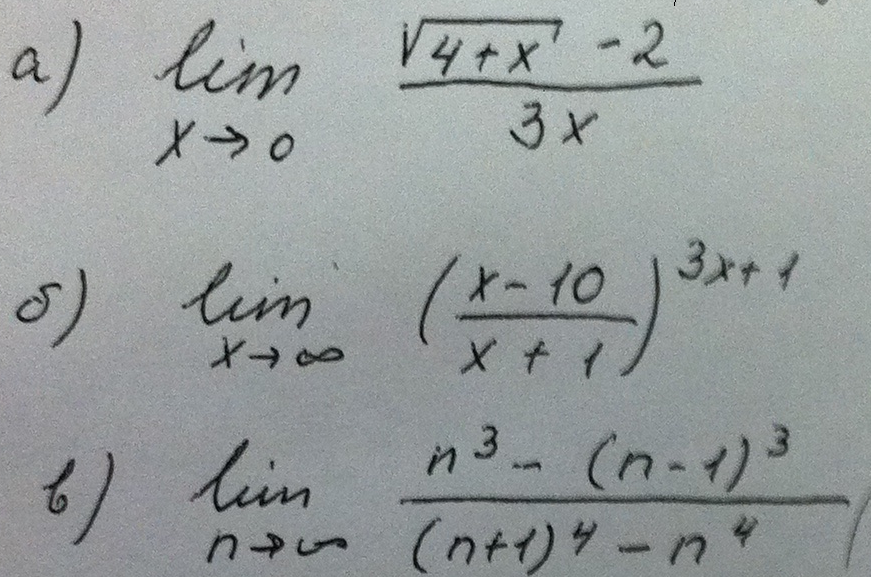 а) lim x→0 (√(4+x) - 2) / (3x)
б) lim x→∞ ((x-10)/(x+1))^(3x+1)
в) lim n→∞ (n³ - (n-1)³) / ((n+1)⁴ - n⁴)